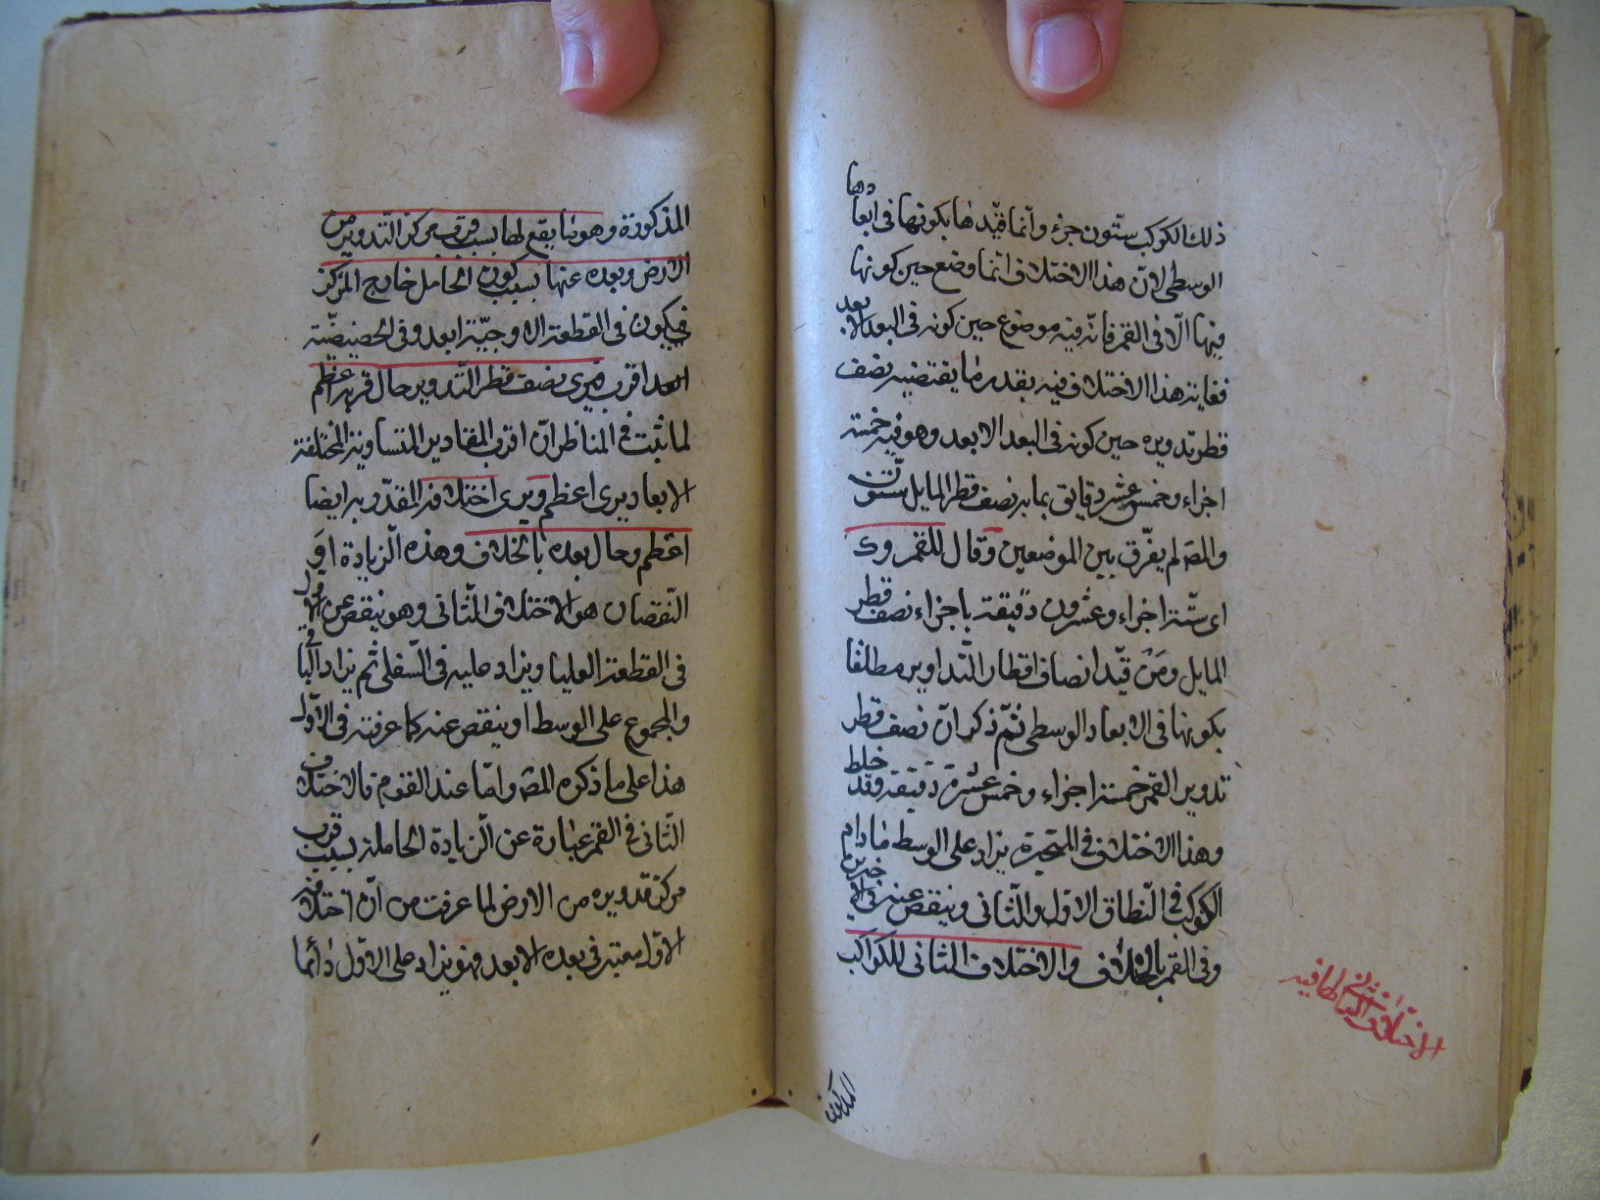 ذلك الكوكب ستّون جزء وانّما قيّدها بكونها فى ابعادها
الوسطى لانّ هذا الاختلاف انّما وضع حين كونها
فيها الّا فى القمر فانّه فيه موضوع حين كونه فى البعد الابعد
فغاية هذا الاختلاف فيه بقدر ما يقتضيه نصف
قطر تدويره حين كونه فى البعد الابعد وهو فيه خمسة
اجزاء وخمس عشر دقايق بما به نصف قطر المايل ستّون
والمصه لم يفرّق بين الموضعين وقال للقمر وك
اى ستّة اجزاء وعشرون دقيقة باجزاء نصف قطر
المايل ومَنْ قيّد انصاف اقطار التّداوير مطلقا
بكونها فى الابعاد الوسطى ثمّ ذكر انّ نصف قطر
تدوير القمر خمسة اجزاء وخمس عشرة دقيقة فقد خلط
وهذا الاختلاف فى المتحيّرة يزاد على الوسط مادام
الكوكب فى النّطاق الاوّل والثّانى وينقص عنه فى الاخيرين
وفى القمر بالخلاف والاختلاف الثانى للكواكب
الاختلاف الثانى
المذكورة
المذكورة وهو ما يقع لها بسبب قرب مركز التّدوير من
الارض وبعده عنها بسبب كون الحامل خارج المركز
فيكون فى القطعة الاوجيّة ابعد وفى الحضيضيّة
اقرب فيرى نصف قطر التّدوير حال قربه اعظم
لما ثبت فى المناظر انّ اقرب المقادير المتساوية المختلفة
الابعاد يرى اعظم ويرى اختلافه المقدّر به ايضا
اعظم وحال بعده بالخلاف وهذه الزّيادة او
النّقصان هو الاختلاف الثّانى وهو ينقص عن الاول
فى القطعة العليا ويزاد عليه فى السّفلى ثم يزاد الباقى
والمجموع على الوسط او ينقص عنه كما عرفته فى الاوّل
هذا على ما ذكره المصه وامّا عند القوم فالاختلاف
الثّانى فى القمر عبارة عن الزّيادة الحاملة بسبب قرب
مركز تدويره من الارض لما عرفت من انّ اختلافه
الاوّل معتبر فى بعده الابعد فهو يزاد على الاوّل دائما